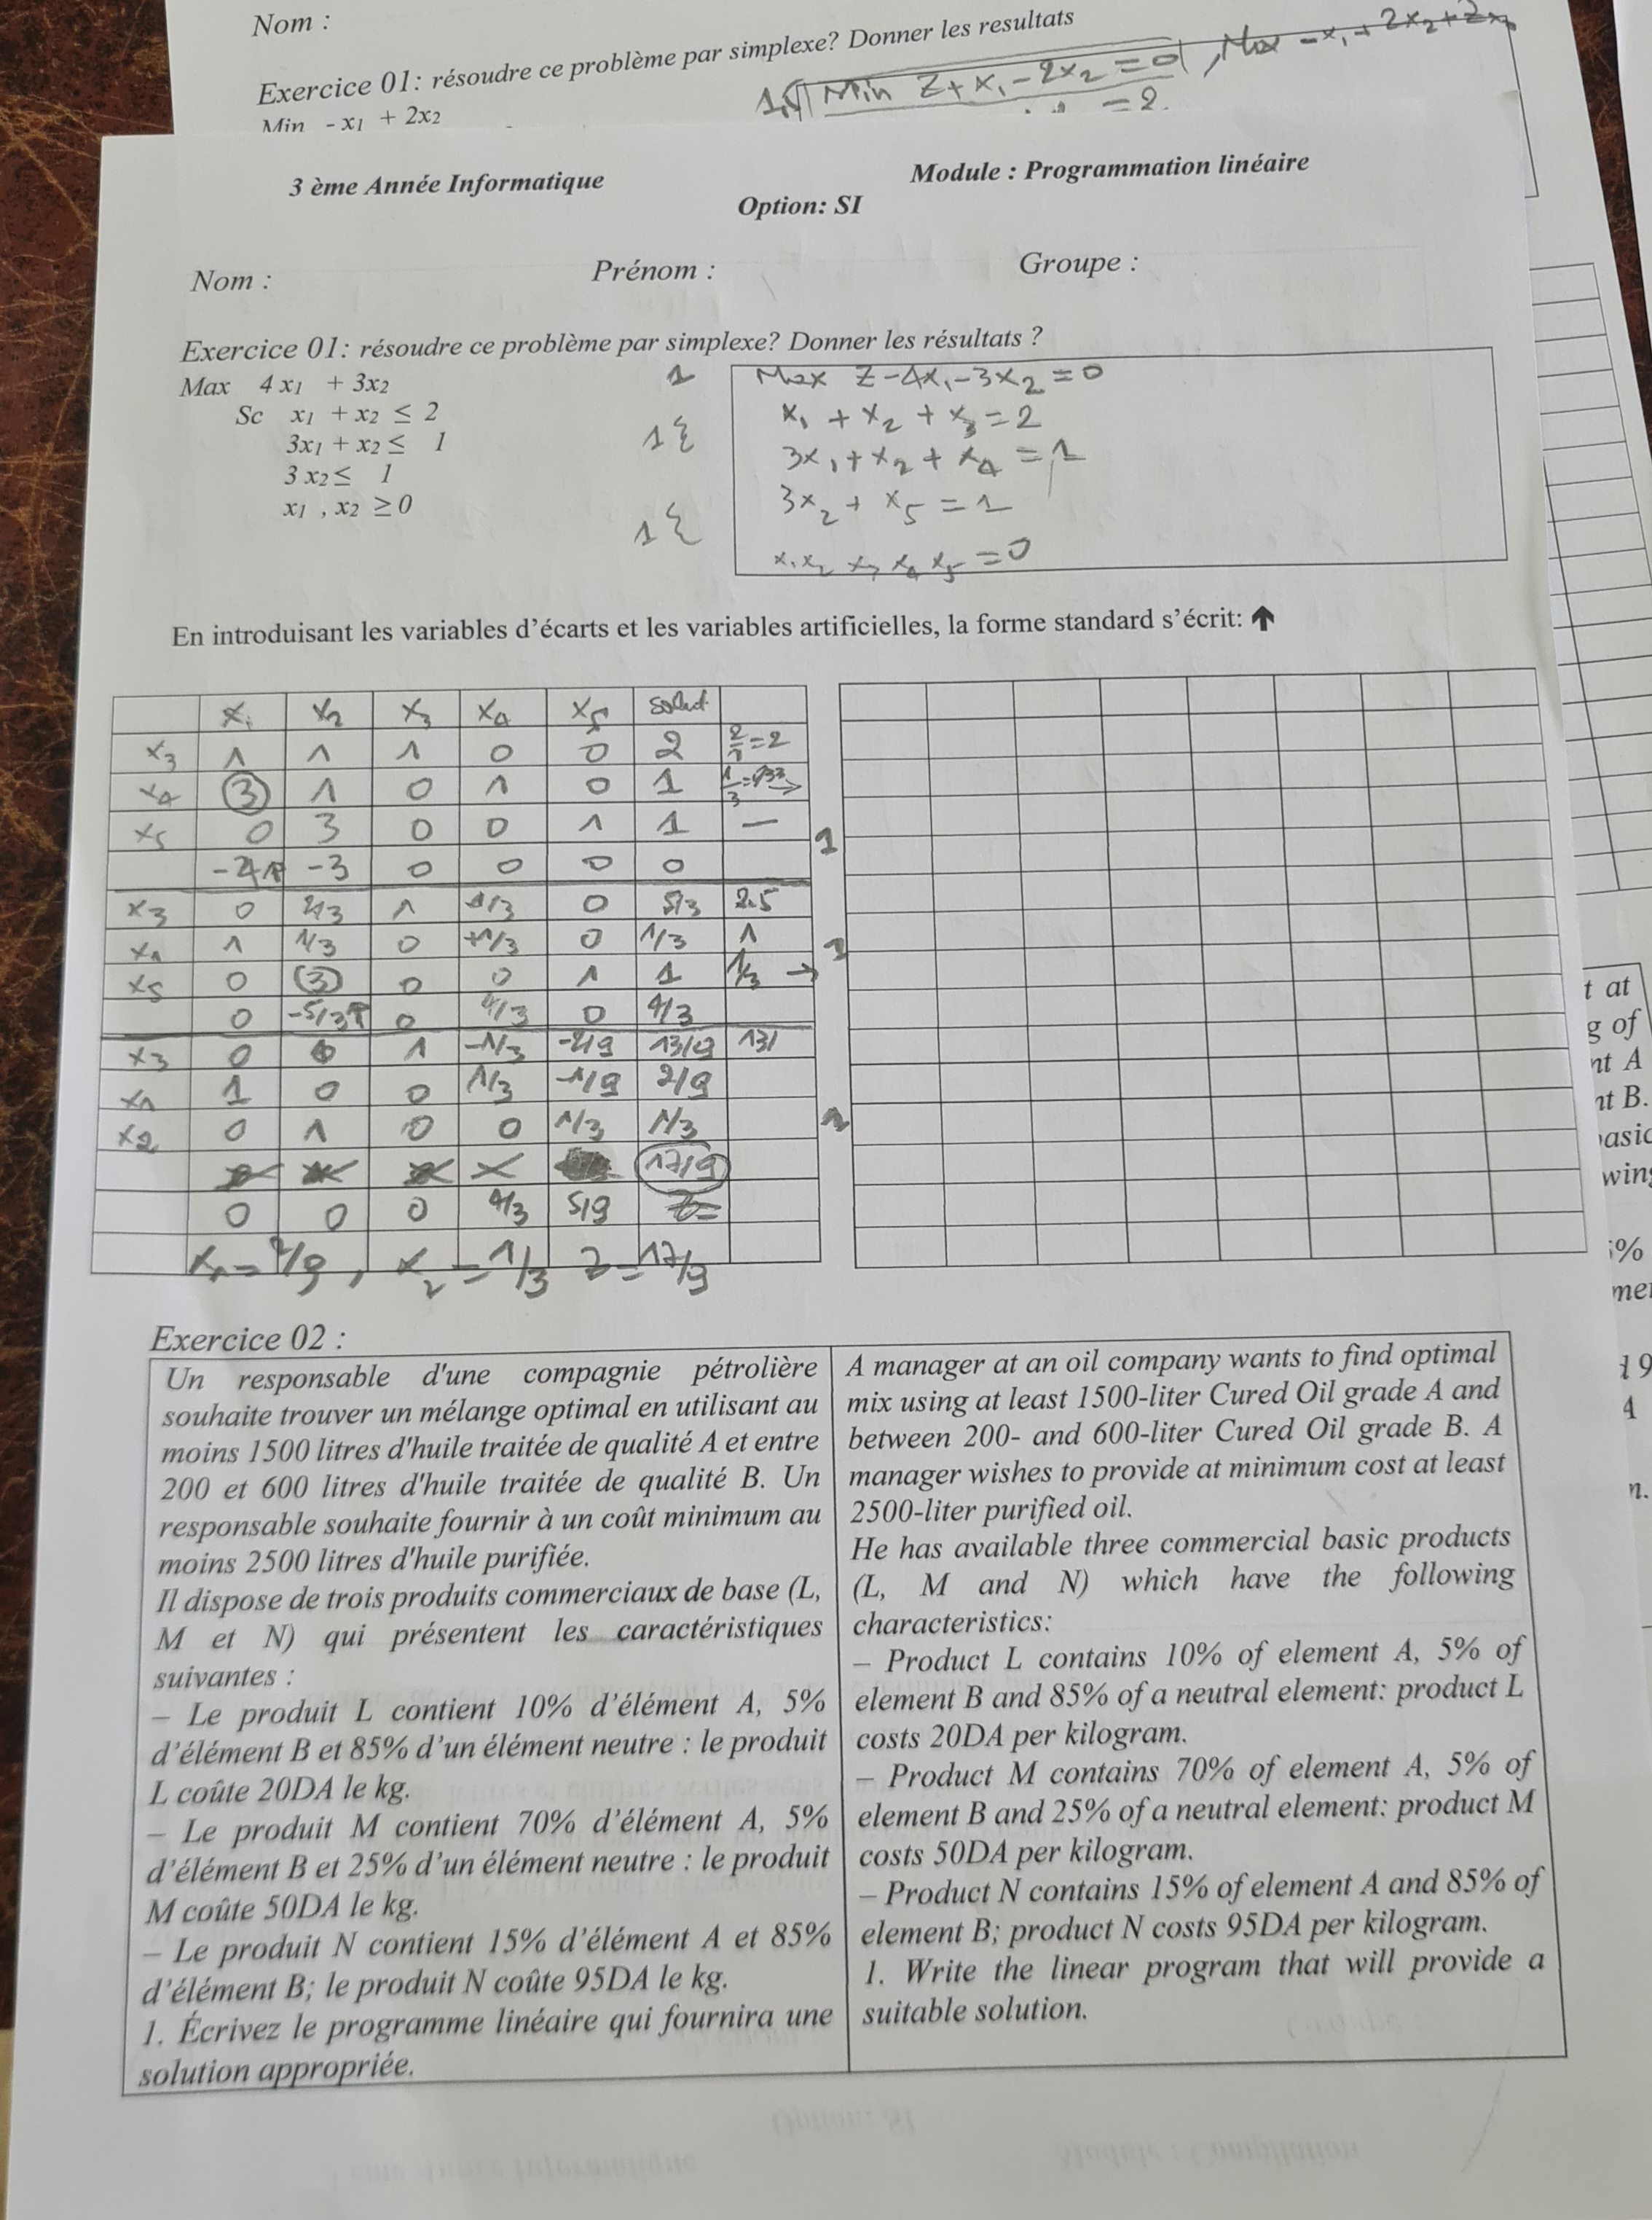 Nom :
Exercice 01: résoudre ce problème par simplexe? Donner les resultats
Min - x1 + 2x2
Min Z + x1 - 2x2 = 0 , Max - x1 + 2x2 +
= 2
3 ème Année Informatique
Module : Programmation linéaire
Option: SI
Nom :
Prénom :
Groupe :
Exercice 01: résoudre ce problème par simplexe? Donner les résultats ?
Max 4 x1 + 3x2
Sc x1 + x2 ≤ 2
3x1 + x2 ≤ 1
3 x2 ≤ 1
x1 , x2 ≥ 0
1
1 {
1 {
Max Z - 4x1 - 3x2 = 0
x1 + x2 + x3 = 2
3x1 + x2 + x4 = 1
3x2 + x5 = 1
x1 x2 x3 x4 x5 = 0
En introduisant les variables d'écarts et les variables artificielles, la forme standard s'écrit: ↑
x1 x2 x3 x4 x5 solut
x3 1 1 1 0 0 2 2/1 = 2
x4 3 1 0 1 0 1 1/3 = →
x5 0 3 0 0 1 1 —
1
-4↑ -3 0 0 0 0
x3 0 2/3 1 -1/3 0 5/3 2.5
x1 1 1/3 0 +1/3 0 1/3 1
1
x5 0 3 0 0 1 1 1/3 →
0 -5/3↑ 0 4/3 0 4/3
x3 0 0 1 -1/3 -2/9 13/9 13/
x1 1 0 0 1/3 -1/9 2/9
x2 0 1 0 0 1/3 1/3
1
17/9
0 0 0 4/3 5/9
x1 = 2/9 , x2 = 1/3 Z = 17/9
Exercice 02 :
Un responsable d'une compagnie pétrolière
souhaite trouver un mélange optimal en utilisant au
moins 1500 litres d'huile traitée de qualité A et entre
200 et 600 litres d'huile traitée de qualité B. Un
responsable souhaite fournir à un coût minimum au
moins 2500 litres d'huile purifiée.
Il dispose de trois produits commerciaux de base (L,
M et N) qui présentent les caractéristiques
suivantes :
– Le produit L contient 10% d'élément A, 5%
d'élément B et 85% d'un élément neutre : le produit
L coûte 20DA le kg.
– Le produit M contient 70% d'élément A, 5%
d'élément B et 25% d'un élément neutre : le produit
M coûte 50DA le kg.
– Le produit N contient 15% d'élément A et 85%
d'élément B; le produit N coûte 95DA le kg.
1. Écrivez le programme linéaire qui fournira une
solution appropriée.
A manager at an oil company wants to find optimal
mix using at least 1500-liter Cured Oil grade A and
between 200- and 600-liter Cured Oil grade B. A
manager wishes to provide at minimum cost at least
2500-liter purified oil.
He has available three commercial basic products
(L, M and N) which have the following
characteristics:
– Product L contains 10% of element A, 5% of
element B and 85% of a neutral element: product L
costs 20DA per kilogram.
– Product M contains 70% of element A, 5% of
element B and 25% of a neutral element: product M
costs 50DA per kilogram.
– Product N contains 15% of element A and 85% of
element B; product N costs 95DA per kilogram.
1. Write the linear program that will provide a
suitable solution.
t at
g of
nt A
nt B.